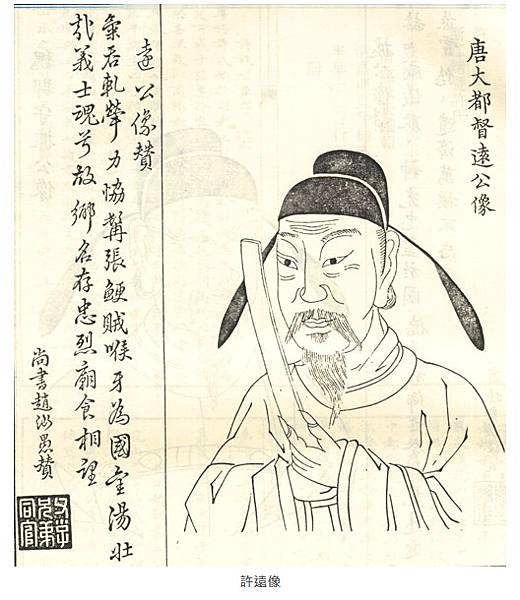 唐大都督遠公像
遠公像贊
氣吞軋犖力協髯張鯁賊喉牙為國金湯壯
哉義士魂兮故鄉名存忠烈廟食相望
尚書趙汝愚贊
父子
兄弟
同官
許遠像